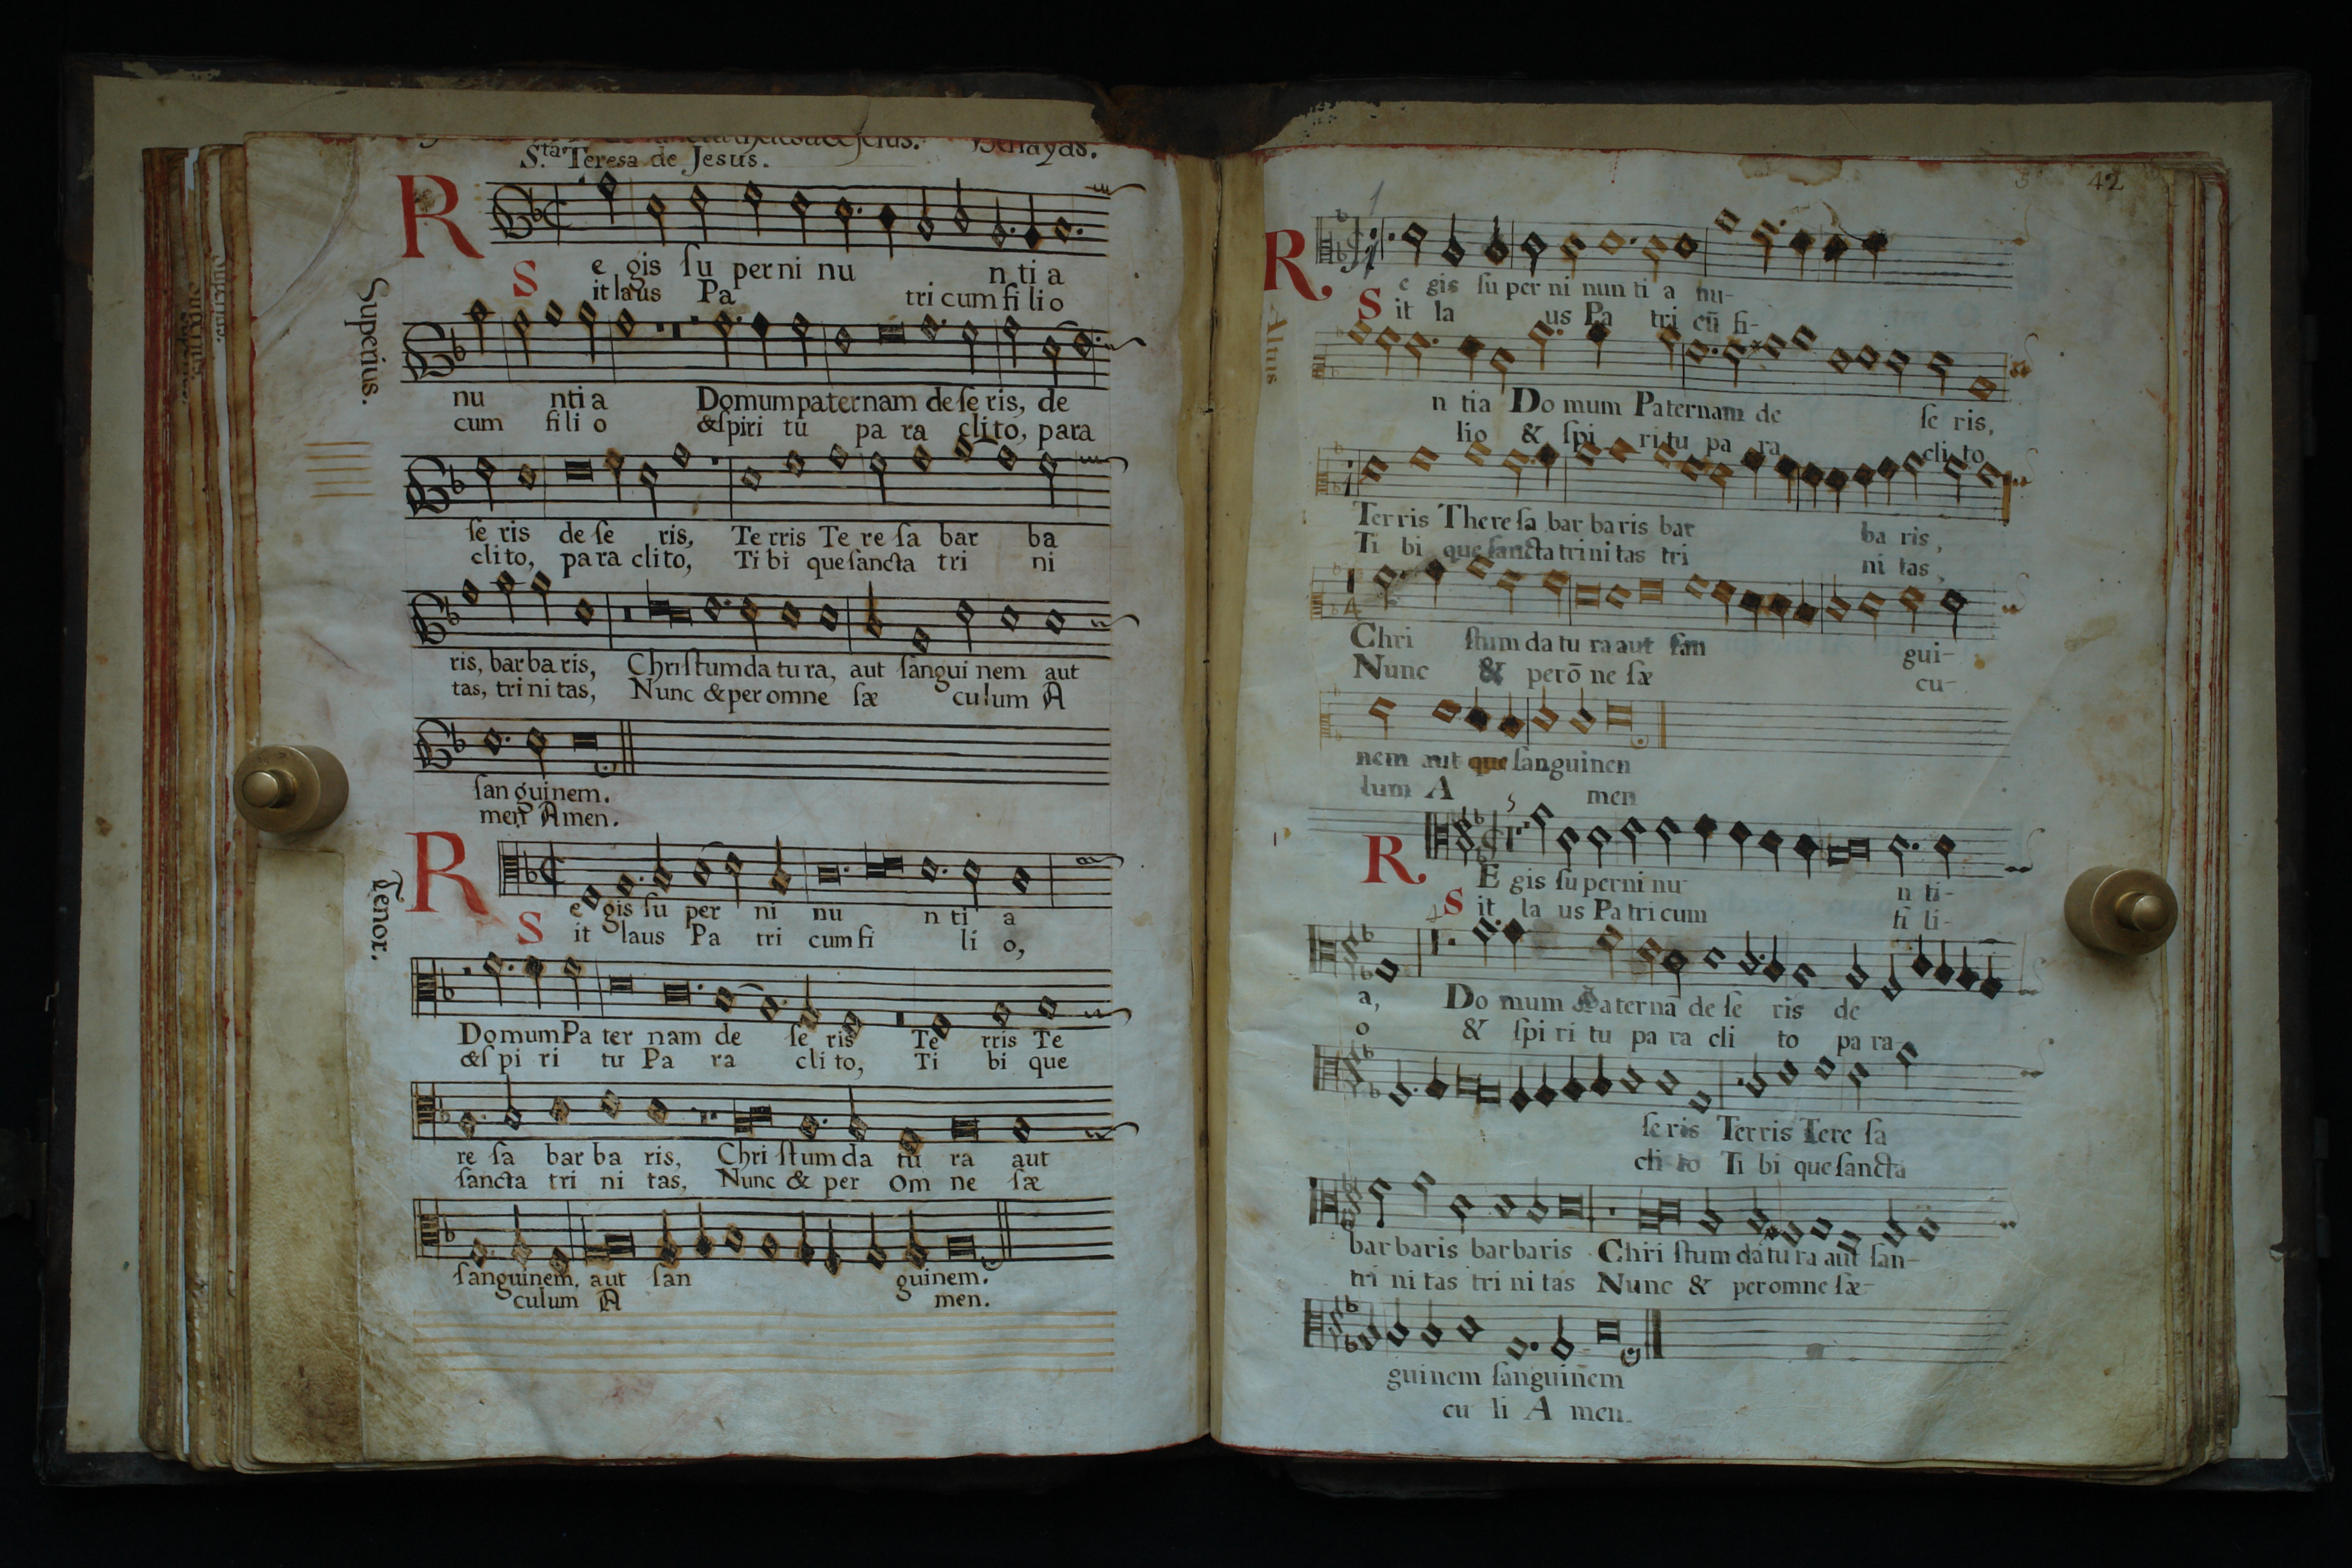 Sta. Teresa de Jesus.
R e gis ſu per ni nu n ti a
S it laus Pa tri cum fi li o
Superius.
nu nti a Domum paternam de ſe ris, de
cum fi li o & ſpiri tu pa ra cli to, para
ſe ris de ſe ris, Te rris Te re ſa bar ba
cli to, pa ra cli to, Ti bi que ſancta tri ni
ris, bar ba ris, Chriſtum da tu ra, aut ſangui nem aut
tas, tri ni tas, Nunc & per omne ſæ culum A
ſan guinem.
men Amen.
R e gis ſu per ni nu n ti a
S it laus Pa tri cum fi li o,
Tenor.
Domum Pa ter nam de ſe ris Te rris Te
& ſpi ri tu Pa ra cli to, Ti bi que
re ſa bar ba ris, Chri ſtum da tu ra aut
ſancta tri ni tas, Nunc & per om ne ſæ
ſanguinem, aut ſan guinem.
culum A men.
42
R e gis ſu per ni nun ti a nu-
S it la us Pa tri cū fi-
Altus
n tia Do mum Paternam de ſe ris,
lio & ſpi ri tu pa ra cli to
Terris Thereſa bar ba ris bar ba ris,
Ti bi que ſancta tri ni tas tri ni tas,
Chri ſtum da tu ra aut ſan gui-
Nunc & per ō ne ſæ cu-
nem aut que ſanguinen
lum A men
R E gis ſu per ni nu n ti-
S it la us Pa tri cum fi li-
a, Do mum Paterna de ſe ris de
o & ſpi ri tu pa ra cli to pa ra
ſe ris Terris Tere ſa
cli to Ti bi que ſancta
bar baris barbaris Chri ſtum da tu ra aut ſan-
tri ni tas tri ni tas Nunc & per omne ſæ-
guinem ſanguinem
cu li A men.